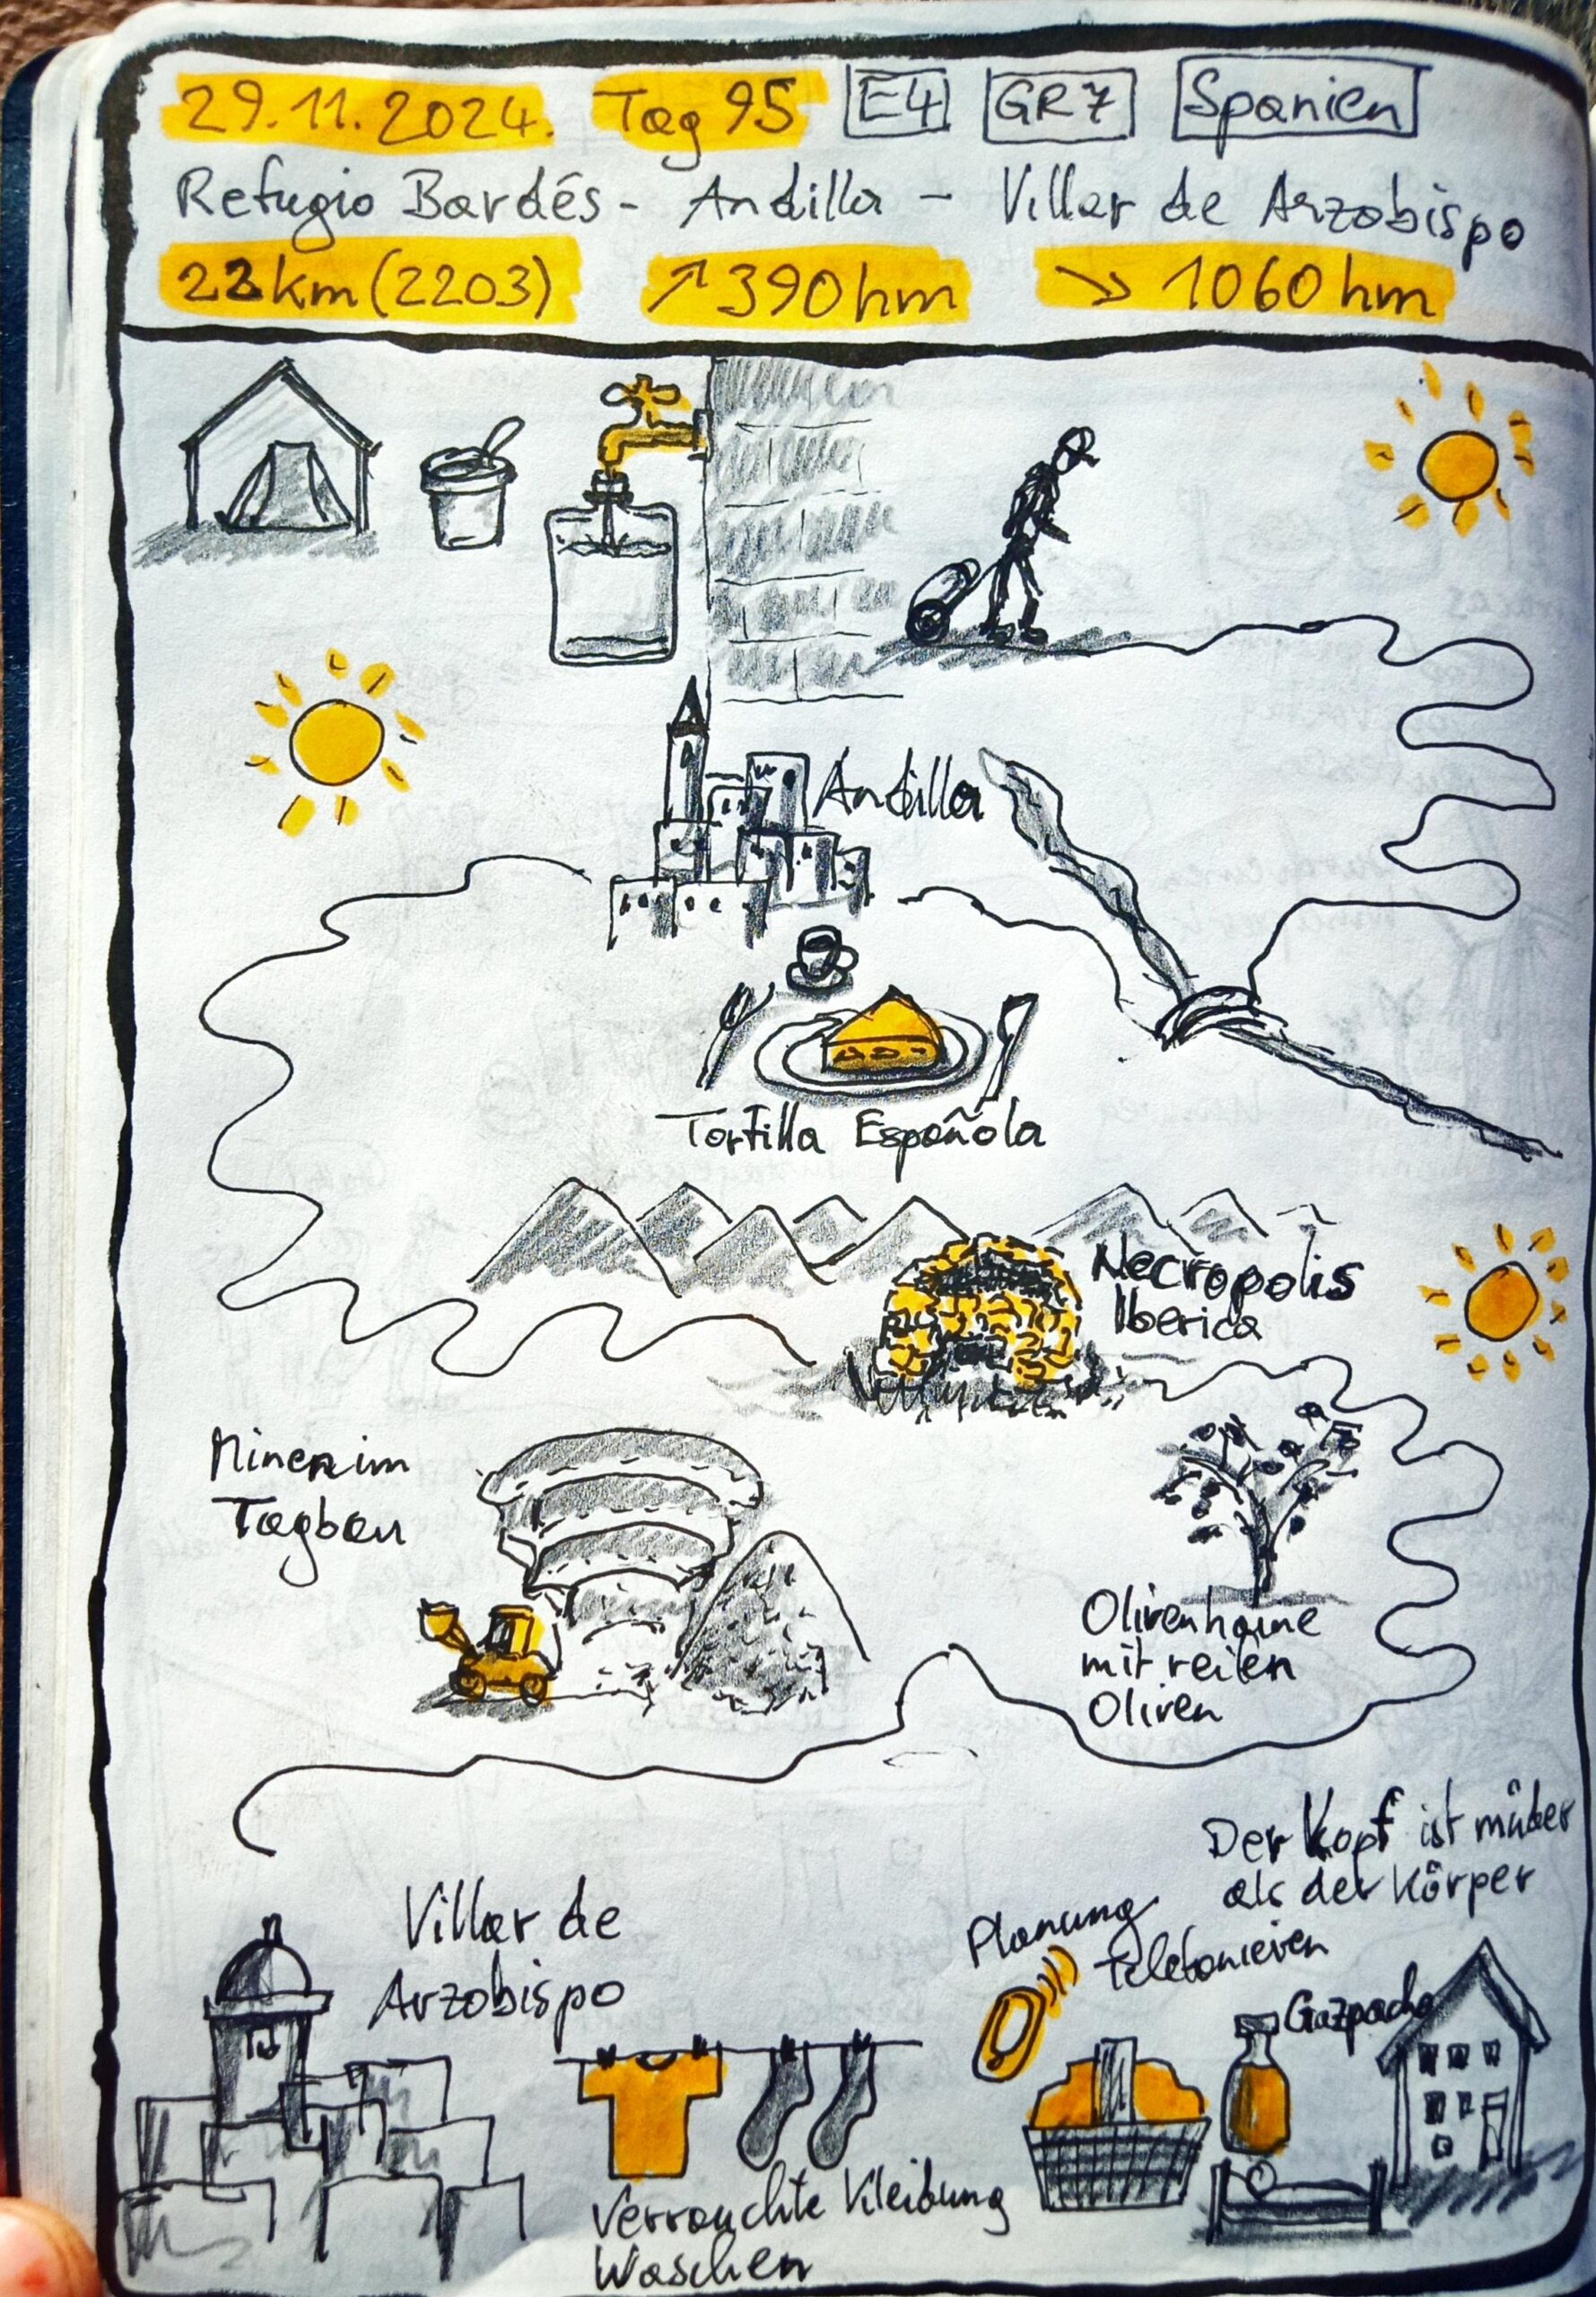 29.11.2024. Tag 95 E4 GR7 Spanien
Refugio Bardés - Andilla - Villar de Arzobispo
22km (2203) ↗390hm ↘ 1060hm
Andilla
Tortilla Española
Necropolis
Iberica
Minen im
Tagbau
Olivenhaine
mit reifen
Oliven
Der Kopf ist müder
als der Körper
Villar de
Arzobispo
Planung
telefonieren
Gazpacho
Verrauchte Kleidung
Waschen